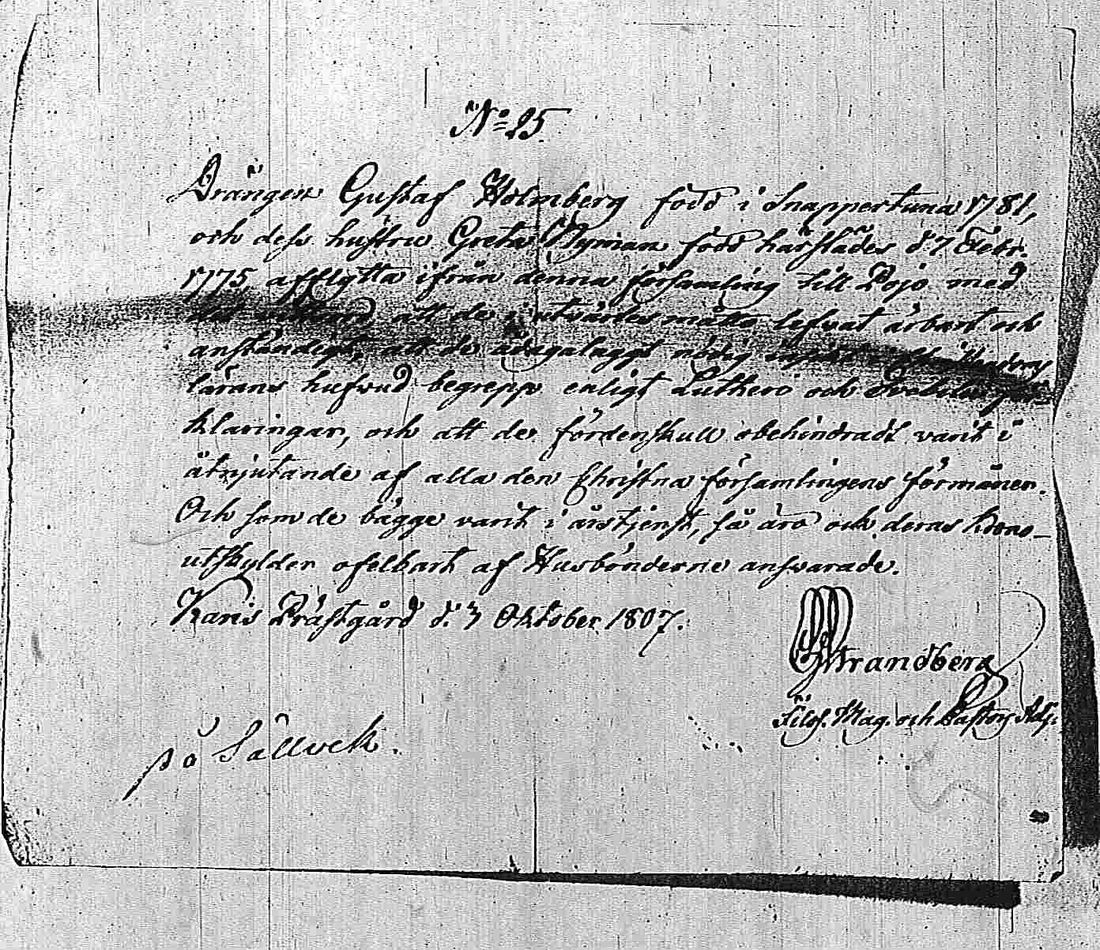 No 25.
Drängen Gustaf Holmberg född i Snappertuna 1781,
och dess hustru Greta Nyman född härstädes d 7 Febr.
1775 afflytta ifrån denna församling till Pojo med
att de i utvärtes måtto lefvat ärbart och
anständigt, att de ådagalaggt nödig
lärans hufvud begrepp enligt Lutheri och
klaringar, och att de fördenskull obehindradt varit i
åtnjutande af alla den Christna församlingens förmåner.
Och som de bägge varit i årstjenst, så äro och deras krono-
utskylder ofelbart af Husbönderne ansvarade.
Karis Prästgård d. 3 Oktober 1807.
Strandberg
Filos. Mag. och Pastors Adj.
på Sällvek.